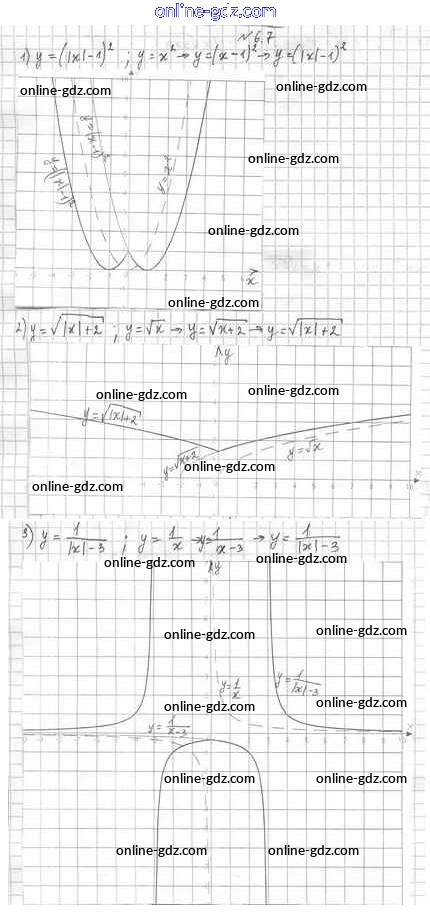 online-gdz.com
№6.7
1) y=(|x|-1)² ; y=x² → y=(x-1)² → y=(|x|-1)²
online-gdz.com
online-gdz.com
y=(x-1)²
online-gdz.com
y=(|x|-1)²
y=x²
online-gdz.com
x
online-gdz.com
2) y=√|x|+2 ; y=√x → y=√x+2 → y=√|x|+2
y
online-gdz.com
online-gdz.com
y=√|x|+2
y=√x+2
y=√x
online-gdz.com
online-gdz.com
online-gdz.com
3) y=1/|x|-3 ; y=1/x → y=1/x-3 → y=1/|x|-3
online-gdz.com
y
online-gdz.com
online-gdz.com
online-gdz.com
y=1/x
y=1/|x|-3
online-gdz.com
online-gdz.com
y=1/x-3
online-gdz.com
online-gdz.com
online-gdz.com
online-gdz.com